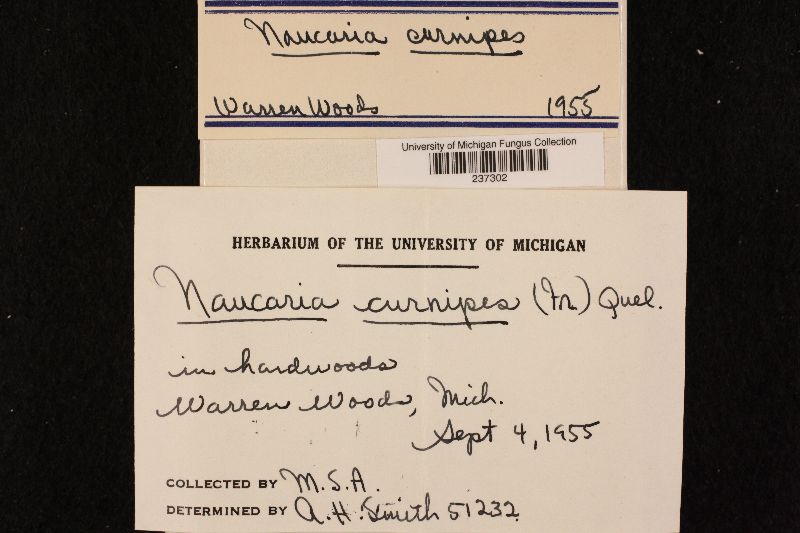 Naucaria curnipes
Warren Woods 1955
University of Michigan Fungus Collection
237302
HERBARIUM OF THE UNIVERSITY OF MICHIGAN
Naucaria curnipes (Fr.) Quel.
in hardwoods
Warren Woods, Mich.
Sept 4, 1955
COLLECTED BY M.S.A.
DETERMINED BY A.H. Smith 51232